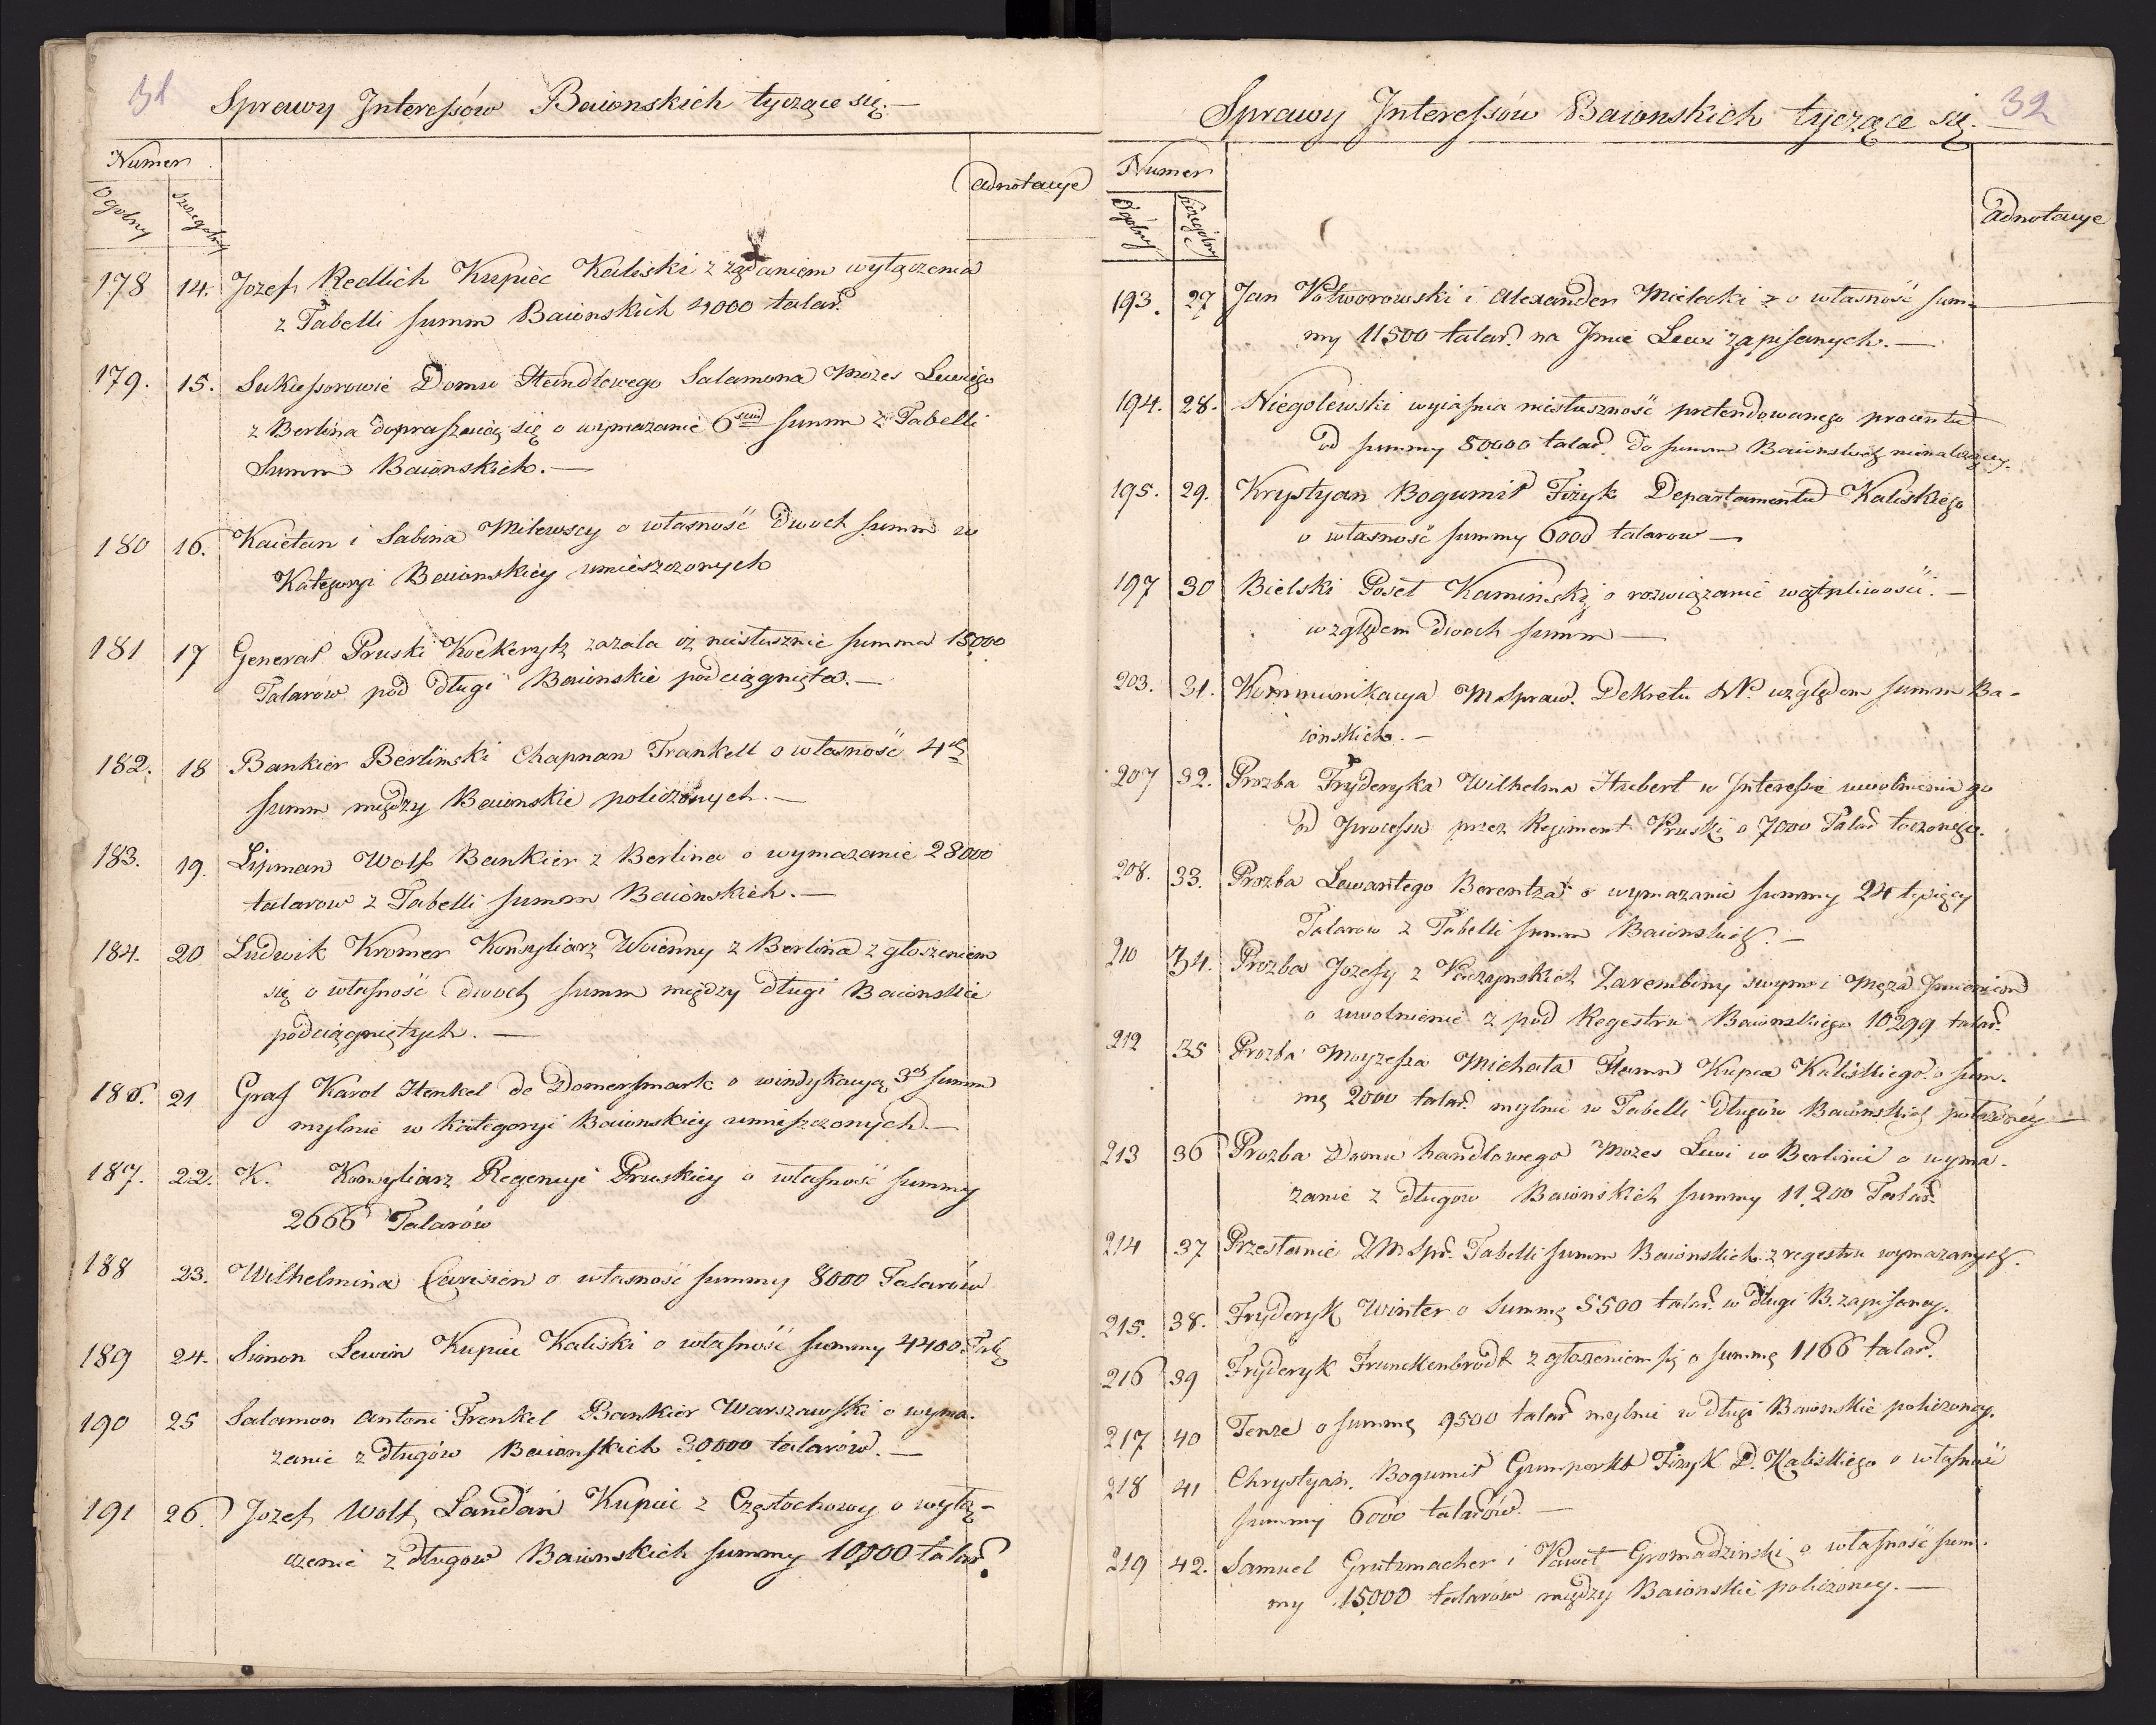 31
Sprawy Interessów Baionskich tyczące się.—
Numer
Ogolny szczegolny
adnotacye
178 14. Jozef Redlich Kupiec Kaliski z żądaniem wyłączenia
z Tabelli summ Baionskich 4000 talar.
179. 15. Sukcessorowie Domu Handlowego Salamona Mozes Lewiego
z Berlina dopraszaią się o wymazanie 6ciu summ z Tabelli
Summ Baionskich.—
180 16. Kaietan i Sabina Milewscy o własność dwoch summ w
Kategoryi Baionskiey umieszczonych
181 17 General Pruski Kockerytz zazala iz niesłusznie summa 15000
Talarów pod długi Baionskie podciągnięta.—
182. 18 Bankier Berlinski Chapman Frankell o własność 4ch
summ między Baionskie policzonych.—
183. 19. Lipman Wolf Bankier z Berlina o wymazanie 28000
talarow z Tabelli summ Baionskich.—
184. 20 Ludwik Kromer Konsyliarz Woienny z Berlina z głoszeniem
się o własność dwoch summ między długi Baionskie
podciągniętych.—
186. 21 Graf Karol Henkel de Donersmark o windykacyą 3ch summ
mylnie w kategoryi Baionskiey umieszczonych.—
187. 22. K. Konsyliarz Regencyi Pruskiey o własność summy
2666 Talarów
188 23. Wilhelmina Carisien o własność summy 8000 Talarów
189 24. Simon Lewin Kupiec Kaliski o własność summy 4400 Tal
190 25 Salamon Antoni Frenkel Bankier Warszawski o wyma-
zanie z długów Baionskich 30000 talarów.—
191 26. Jozef Wolf Landau Kupiec z Częstochowy o wyłą-
czenie z długow Baionskich summy 10000 talar.
32
Sprawy Interessów Baionskich tyczące się.—
Numer
Ogólny szczególny
adnotacye
193. 27 Jan Potworowski i Alexander Mielecki o własność sum-
my 11500 talar. na Jmie Lewi zapisanych.—
194. 28. Niegolewski wyiasnia niesłuszność pretendowanego procentu
od summy 50000 talar. do summ Baionskich nienależącey.
195. 29. Krystyan Bogumił Fizyk Departamentu Kaliskiego
o własność summy 6000 talarow—
197 30 Bielski Poseł Kaminski o rozwiązanie wątpliwosci.—
względem dwoch summ—
203. 31. Kommunikacya M Spraw. Dekretu NP. względem summ Ba-
ionskich.—
207 32. Prozba Fryderyka Wilhelma Hubert w Interessie uwolnienia go
od processu przez Regiment Pruski o 7000 Talar toczonego.
208. 33. Prozba Lewantego Berentza o wymazanie summy 24 tysięcy
Talarow z Tabelli summ Baionskich.—
210 34. Prozba Jozefy z Zarembiny swym i Męża Jmieniem
o uwolnienie z pod Regestru Baionskiego 10299 talar.
212 35 Prozba Moyzessa Michała Hamn Kupca Kaliskiego o sum-
mę 2000 talar. mylnie w Tabelli długów Baionskich położoney—
213 36 Prozba Domu handlowego Mozes Lewi w Berlinie o wyma-
zanie z długow Baionskich summy 11200 Talar.
214 37 Przesłanie Tabelli summ Baionskich z regestru wymazanych.
215. 38. Fryderyk Winter o Summę 5500 talar. w długi B. zapisaney.
216 39 Fryderyk Frunckenbrodt z głoszeniem się o summę 1166 talar.
217 40 Tenze o summę 9500 talar mylnie w długi Baionskie policzoney.
218 41 Chrystyan Bogumił Gumperkt Fizyk D. Kaliskiego o własność
summy 6000 talarów.—
219 42. Samuel Grutzmacher i Paweł Gromadzinski o własność sum-
my 15000 talarów między Baionskie policzoney.—